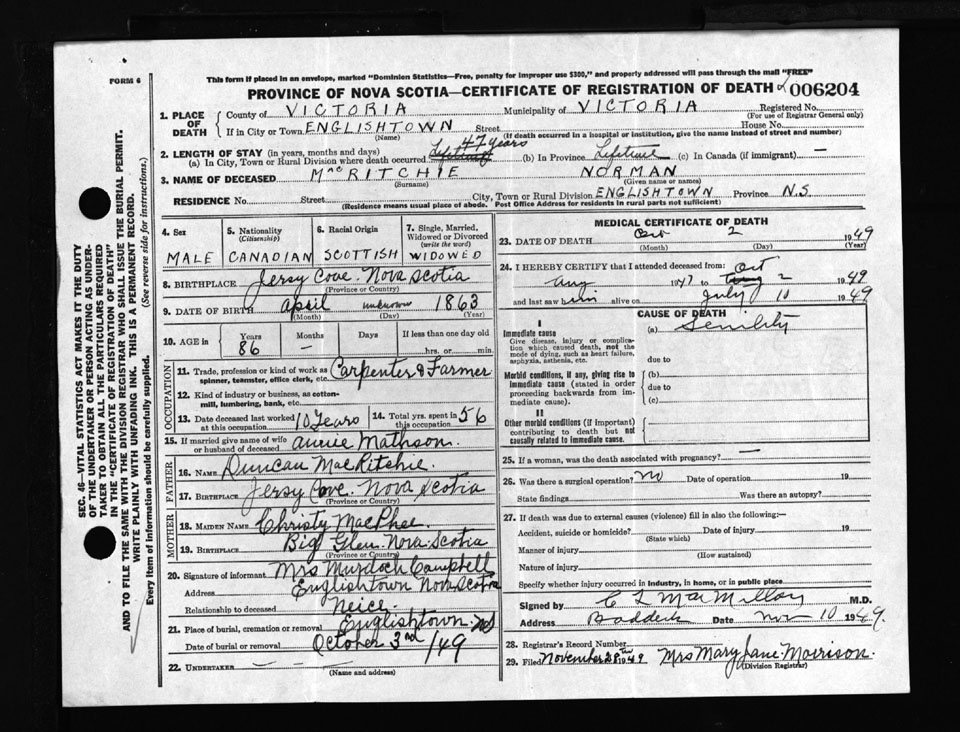 This form if placed in an envelope, marked "Dominion Statistics—Free, penalty for improper use $300," and properly addressed will pass through the mail "FREE"
FORM 6
PROVINCE OF NOVA SCOTIA—CERTIFICATE OF REGISTRATION OF DEATH 006204
1. PLACE OF DEATH { County of VICTORIA Municipality of VICTORIA Registered No.
(For use of Registrar General only)
If in City or Town ENGLISHTOWN Street House No.
(Name) (If death occurred in a hospital or institution, give the name instead of street and number)
47 years
2. LENGTH OF STAY (in years, months and days)
(a) In City, Town or Rural Division where death occurred Lifetime (b) In Province Lifetime (c) In Canada (if immigrant) —
3. NAME OF DECEASED MacRITCHIE NORMAN
(Surname) (Given name or names)
RESIDENCE No. Street City, Town or Rural Division ENGLISHTOWN Province N.S.
(Residence means usual place of abode. Post Office Address for residents in rural parts not sufficient)
4. Sex 5. Nationality (Citizenship) 6. Racial Origin 7. Single, Married, Widowed or Divorced (write the word)
MALE CANADIAN SCOTTISH WIDOWED
8. BIRTHPLACE Jersy Cove. Nova Scotia
(Province or Country)
9. DATE OF BIRTH April unknown 1863
(Month) (Day) (Year)
10. AGE in { Years Months Days If less than one day old
86 — hrs. or min.
OCCUPATION
11. Trade, profession or kind of work as Carpenter & Farmer
spinner, teamster, office clerk, etc.
12. Kind of industry or business, as cotton-
mill, lumbering, bank, etc.
13. Date deceased last worked at this occupation 10 Years 14. Total yrs. spent in this occupation 56
15. If married give name of wife or husband of deceased Annie Mathson.
FATHER
16. NAME Duncan MacRitchie.
17. BIRTHPLACE Jersy Cove. Nova Scotia
(Province or Country)
MOTHER
18. MAIDEN NAME Christy MacPhee.
19. BIRTHPLACE Big Glen. Nova Scotia
(Province or Country)
20. Signature of informant Mrs Murdoch Campbell
Address Englishtown Nova Scotia
Relationship to deceased Neice.
21. Place of burial, cremation or removal Englishtown. NS
Date of burial or removal October 3rd /49
22. UNDERTAKER — — —
(Name and address)
MEDICAL CERTIFICATE OF DEATH
23. DATE OF DEATH Oct 2 1949
(Month) (Day) (Year)
24. I HEREBY CERTIFY that I attended deceased from: Oct
Aug 1947 to 2 1949
and last saw him alive on July 10 1949
CAUSE OF DEATH
I
Immediate cause (a) Senility
Give disease, injury or complica-
tion which caused death, not the
mode of dying, such as heart failure,
asphyxia, asthenia, etc.
due to
Morbid conditions, if any, giving rise to
immediate cause (stated in order
proceeding backwards from
immediate cause).
(b)
due to
(c)
II
Other morbid conditions (if important)
contributing to death but not
causally related to immediate cause.
25. If a woman, was the death associated with pregnancy? —
26. Was there a surgical operation? No Date of operation 19
State findings Was there an autopsy?
27. If death was due to external causes (violence) fill in also the following:—
Accident, suicide or homicide? Date of injury 19
(State which)
Manner of injury
(How sustained)
Nature of injury
Specify whether injury occurred in industry, in home, or in public place
Signed by C L MacMillan M.D.
Address Baddeck Date Nov 10 1949.
28. Registrar's Record Number
29. Filed November 28th 1949 Mrs Mary Jane Morrison.
(Division Registrar)
SEC. 46—VITAL STATISTICS ACT MAKES IT THE DUTY
OF THE UNDERTAKER OR PERSON ACTING AS UNDER-
TAKER TO OBTAIN ALL THE PARTICULARS REQUIRED
IN THE "CERTIFICATE OF REGISTRATION OF DEATH"
AND TO FILE THE SAME WITH THE DIVISION REGISTRAR WHO SHALL ISSUE THE BURIAL PERMIT.
WRITE PLAINLY WITH UNFADING INK. THIS IS A PERMANENT RECORD.
Every item of information should be carefully supplied. (See reverse side for instructions.)